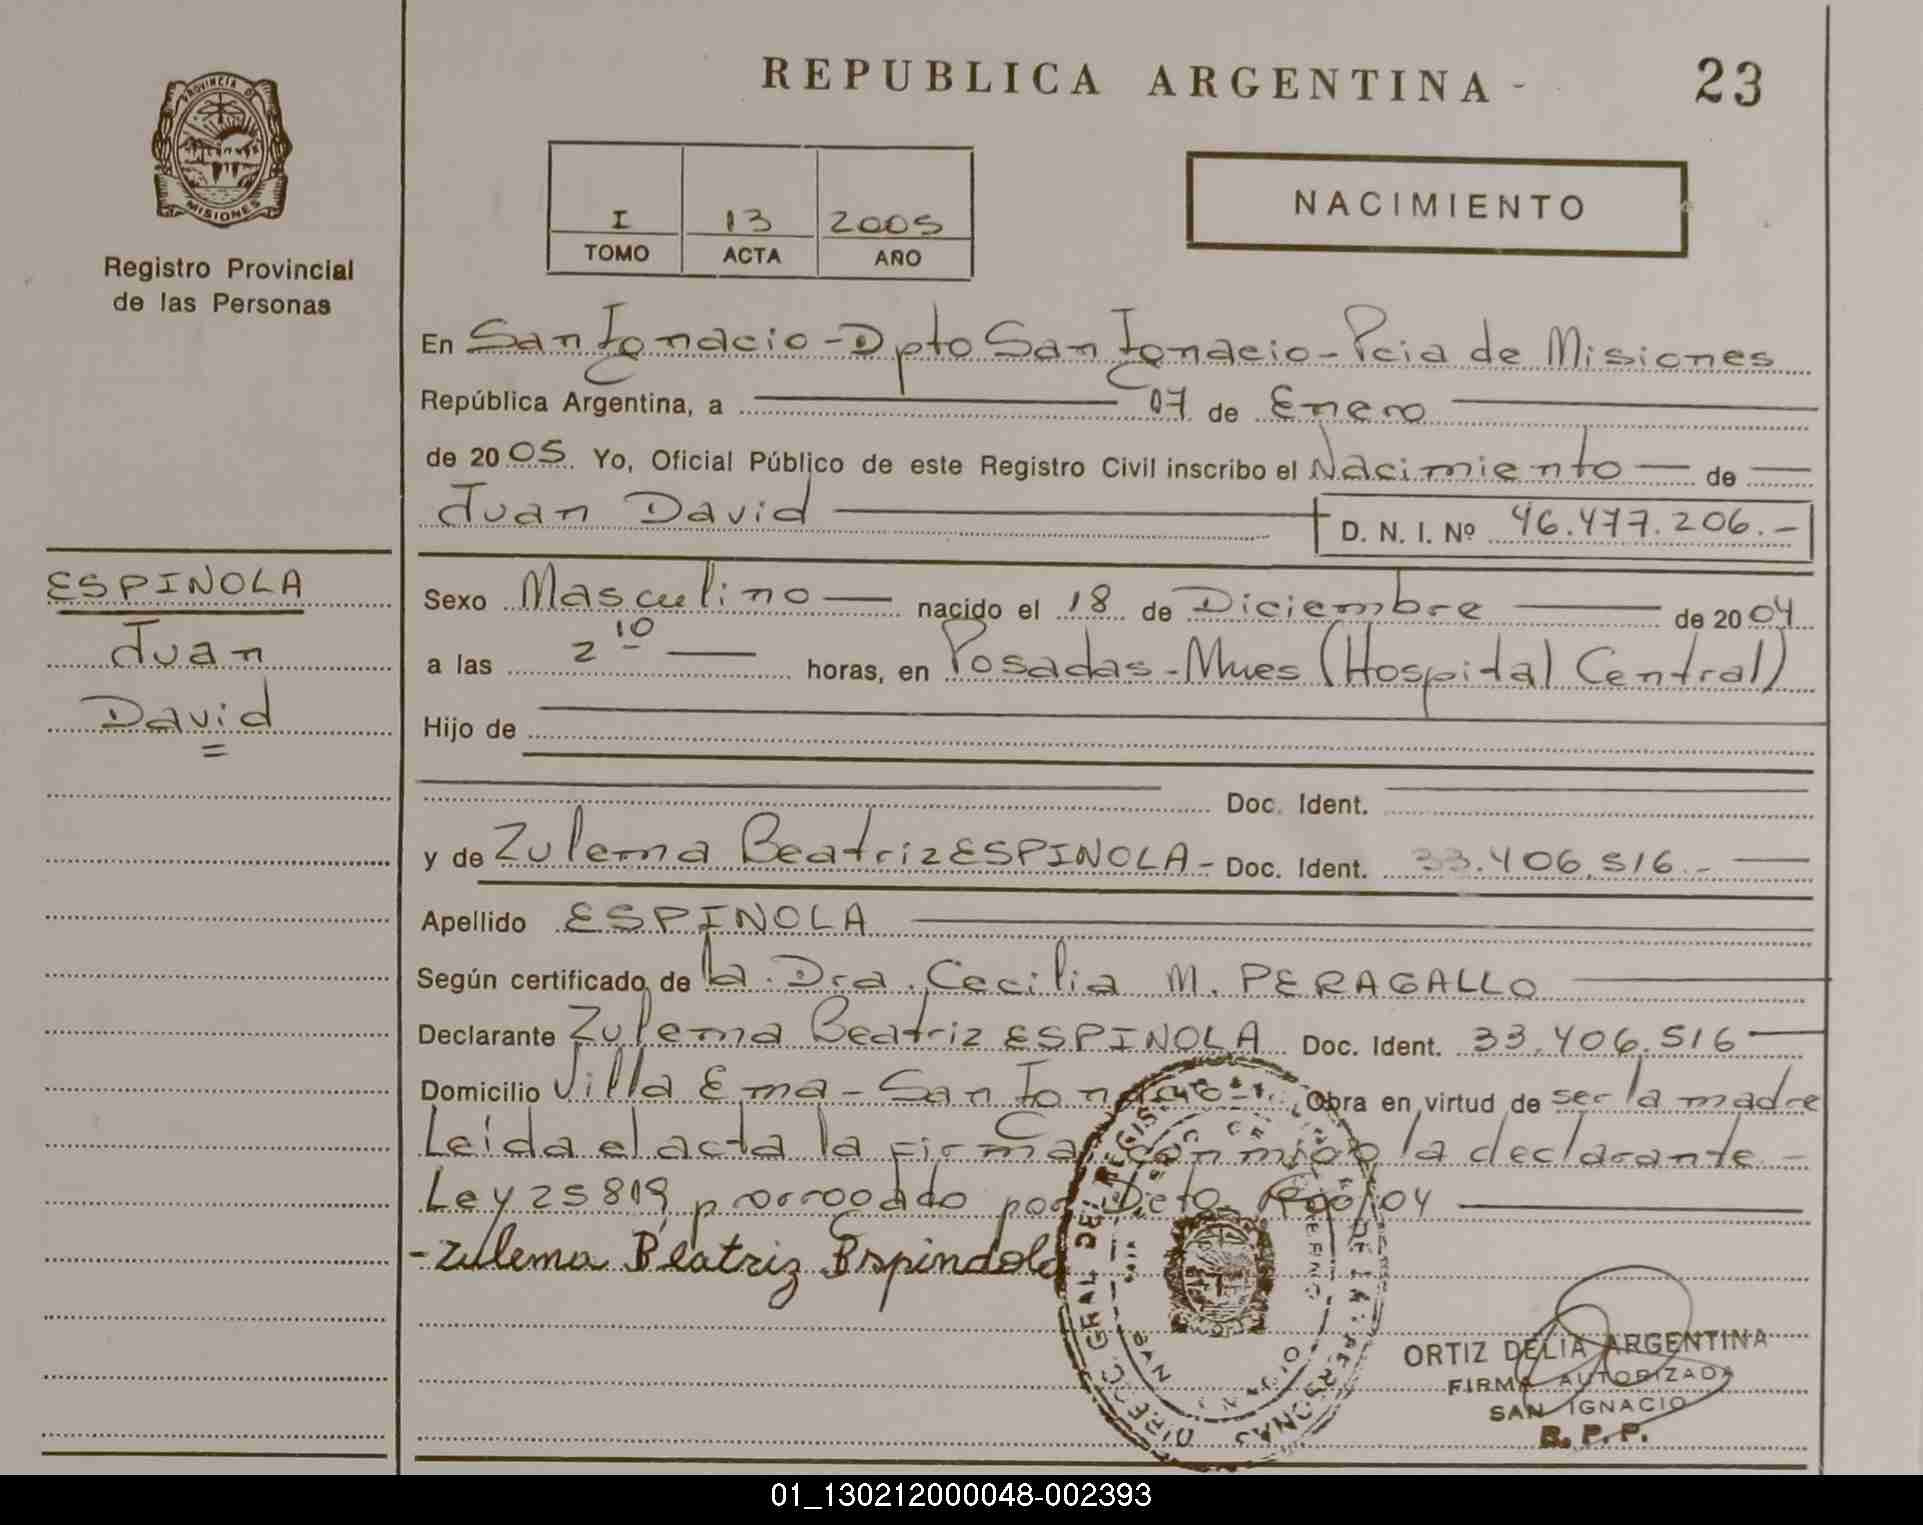 REPUBLICA ARGENTINA - 23
PROVINCIA DE
MISIONES
Registro Provincial
de las Personas
I 13 2005
TOMO ACTA AÑO
NACIMIENTO
En San Ignacio - Dpto San Ignacio - Pcia de Misiones
República Argentina, a 07 de Enero
de 2005. Yo, Oficial Público de este Registro Civil inscribo el Nacimiento — de —
Juan David — D. N. I. Nº 46.477.206.-
ESPINOLA
Juan
David
Sexo Masculino — nacido el 18 de Diciembre — de 2004
a las 2 10 — horas, en Posadas - Mnes (Hospital Central)
Hijo de
Doc. Ident.
y de Zulema Beatriz ESPINOLA - Doc. Ident. 33.406.516.- —
Apellido ESPINOLA
Según certificado de la Dra. Cecilia M. PERAGALLO
Declarante Zulema Beatriz ESPINOLA Doc. Ident. 33.406.516 —
Domicilio Villa Ema - San Ignacio - Obra en virtud de ser la madre
Leída el acta la firma conmigo la declarante -
Ley 25819, prorrogado por Dcto /04 —
- Zulema Beatriz Espindola
DIRECC GRAL DEL REGIST DE LAS PERSONAS
SAN IGNACIO
ORTIZ DELIA ARGENTINA
FIRMA AUTORIZADA
SAN IGNACIO
R. P. P.
01_130212000048-002393